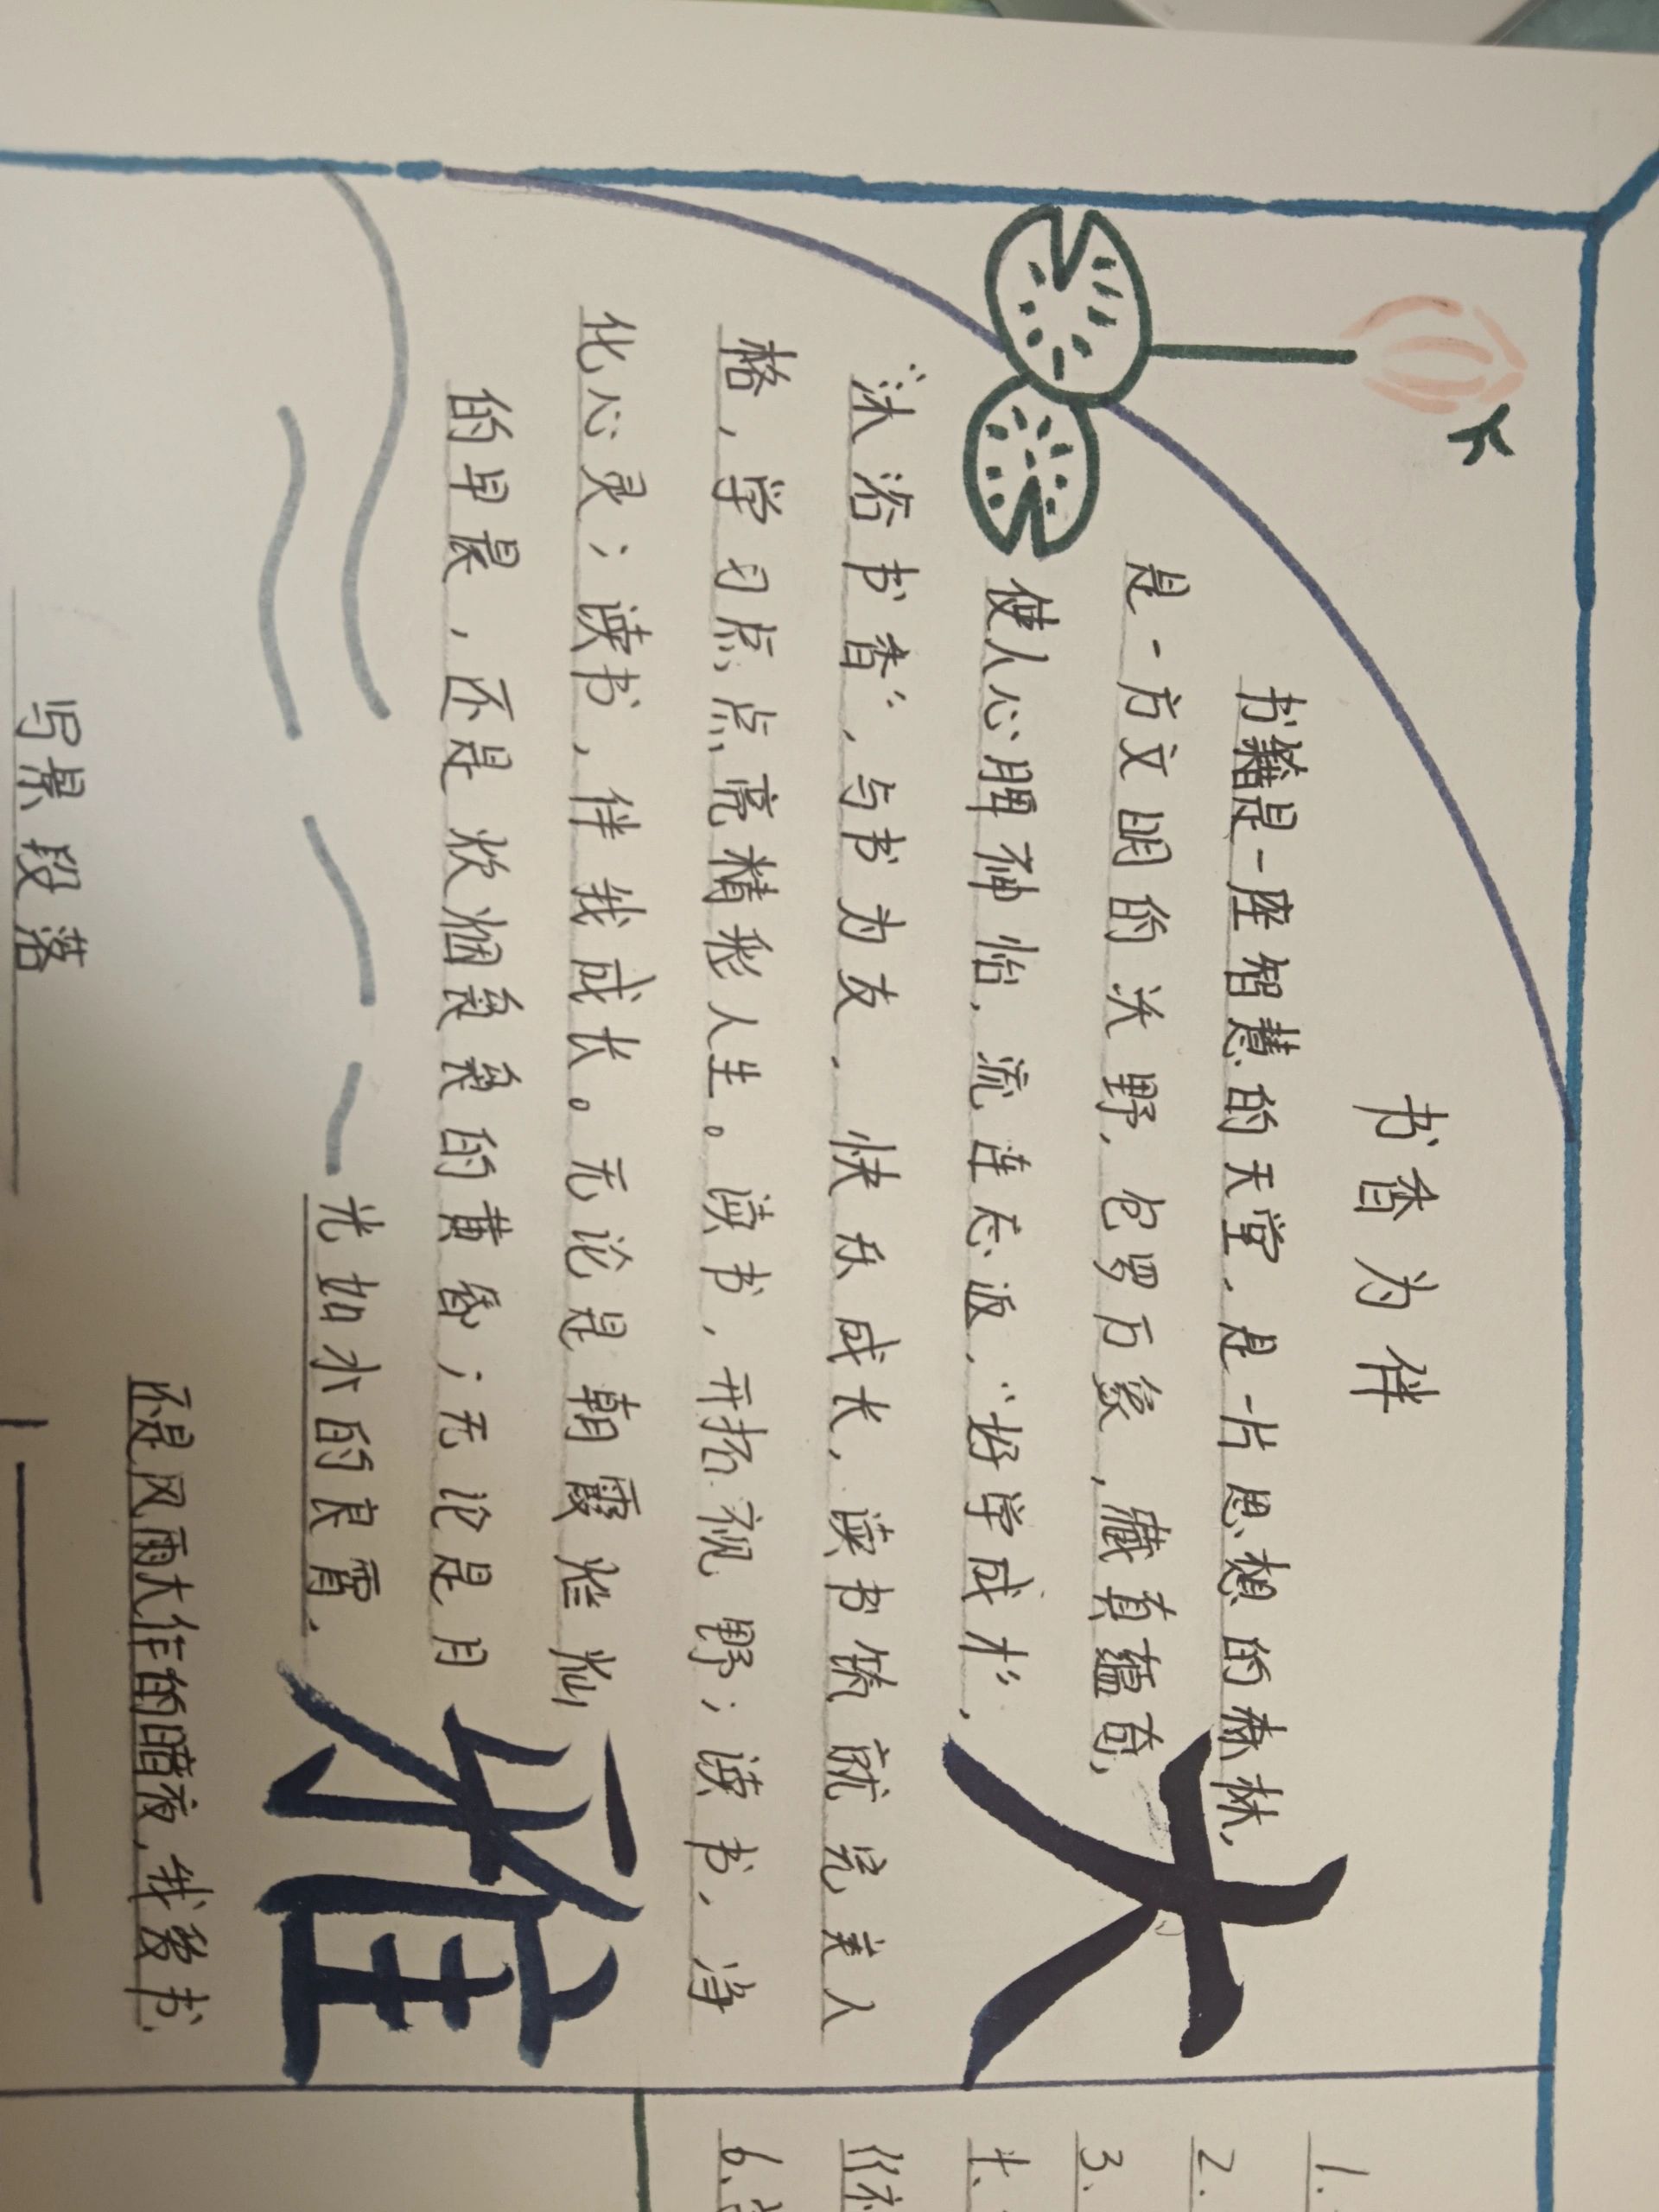 书香为伴
书籍是一座智慧的天堂，是一片思想的森林，
是一方文明的沃野，包罗万象，藏真蕴奇，
使人心脾神怡，流连忘返，“好学成才”，
“沐浴书香”，与书为友，快乐成长，读书筑就完美人
格，学习点点亮精彩人生。读书，开拓视野；读书，净
化心灵；读书，伴我成长。无论是朝霞灿烂
的早晨，还是炊烟袅袅的黄昏；无论是月
光如水的良宵，
还是风雨大作的暗夜，我爱书
大
雅
写景段落
1.
2.
3.
6、